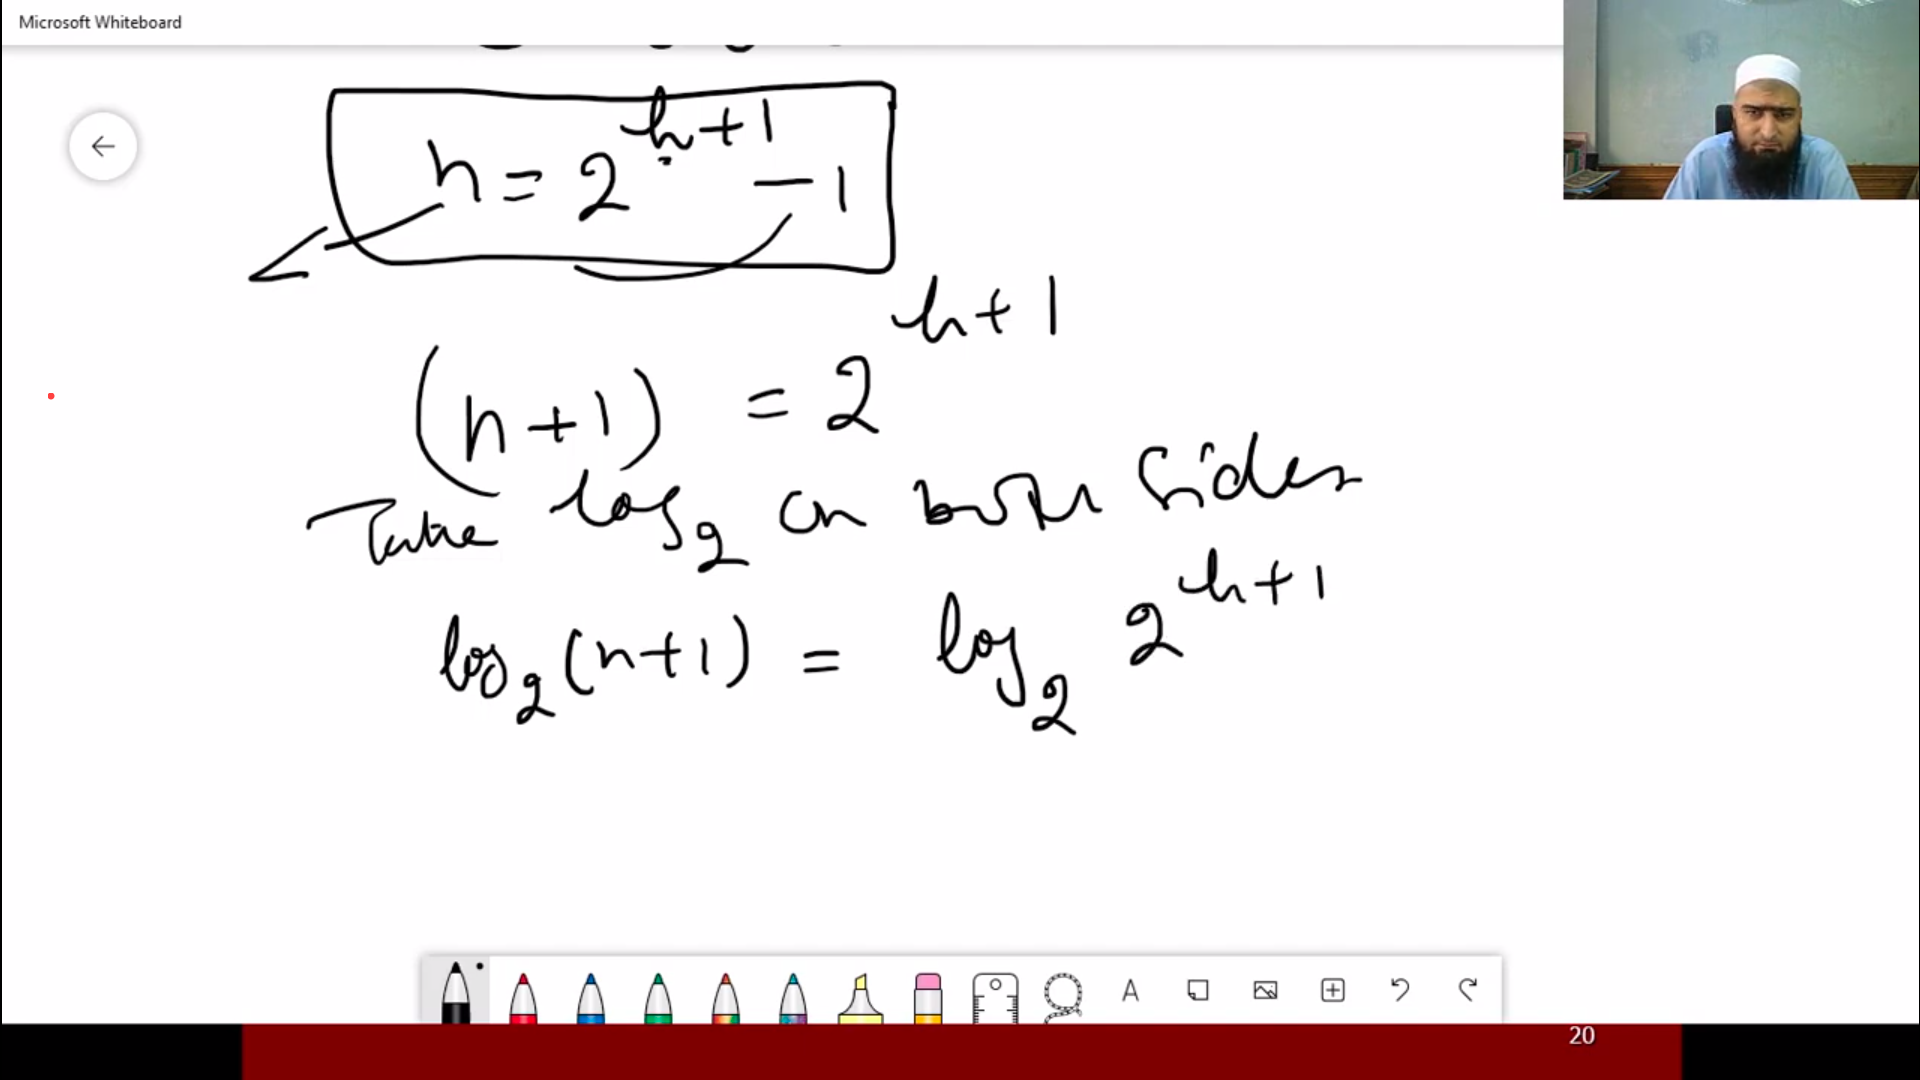 Microsoft Whiteboard
n = 2^{h+1} - 1
(n+1) = 2^{h+1}
Take log_2 on both sides
log_2 (n+1) = log_2 2^{h+1}
A
20